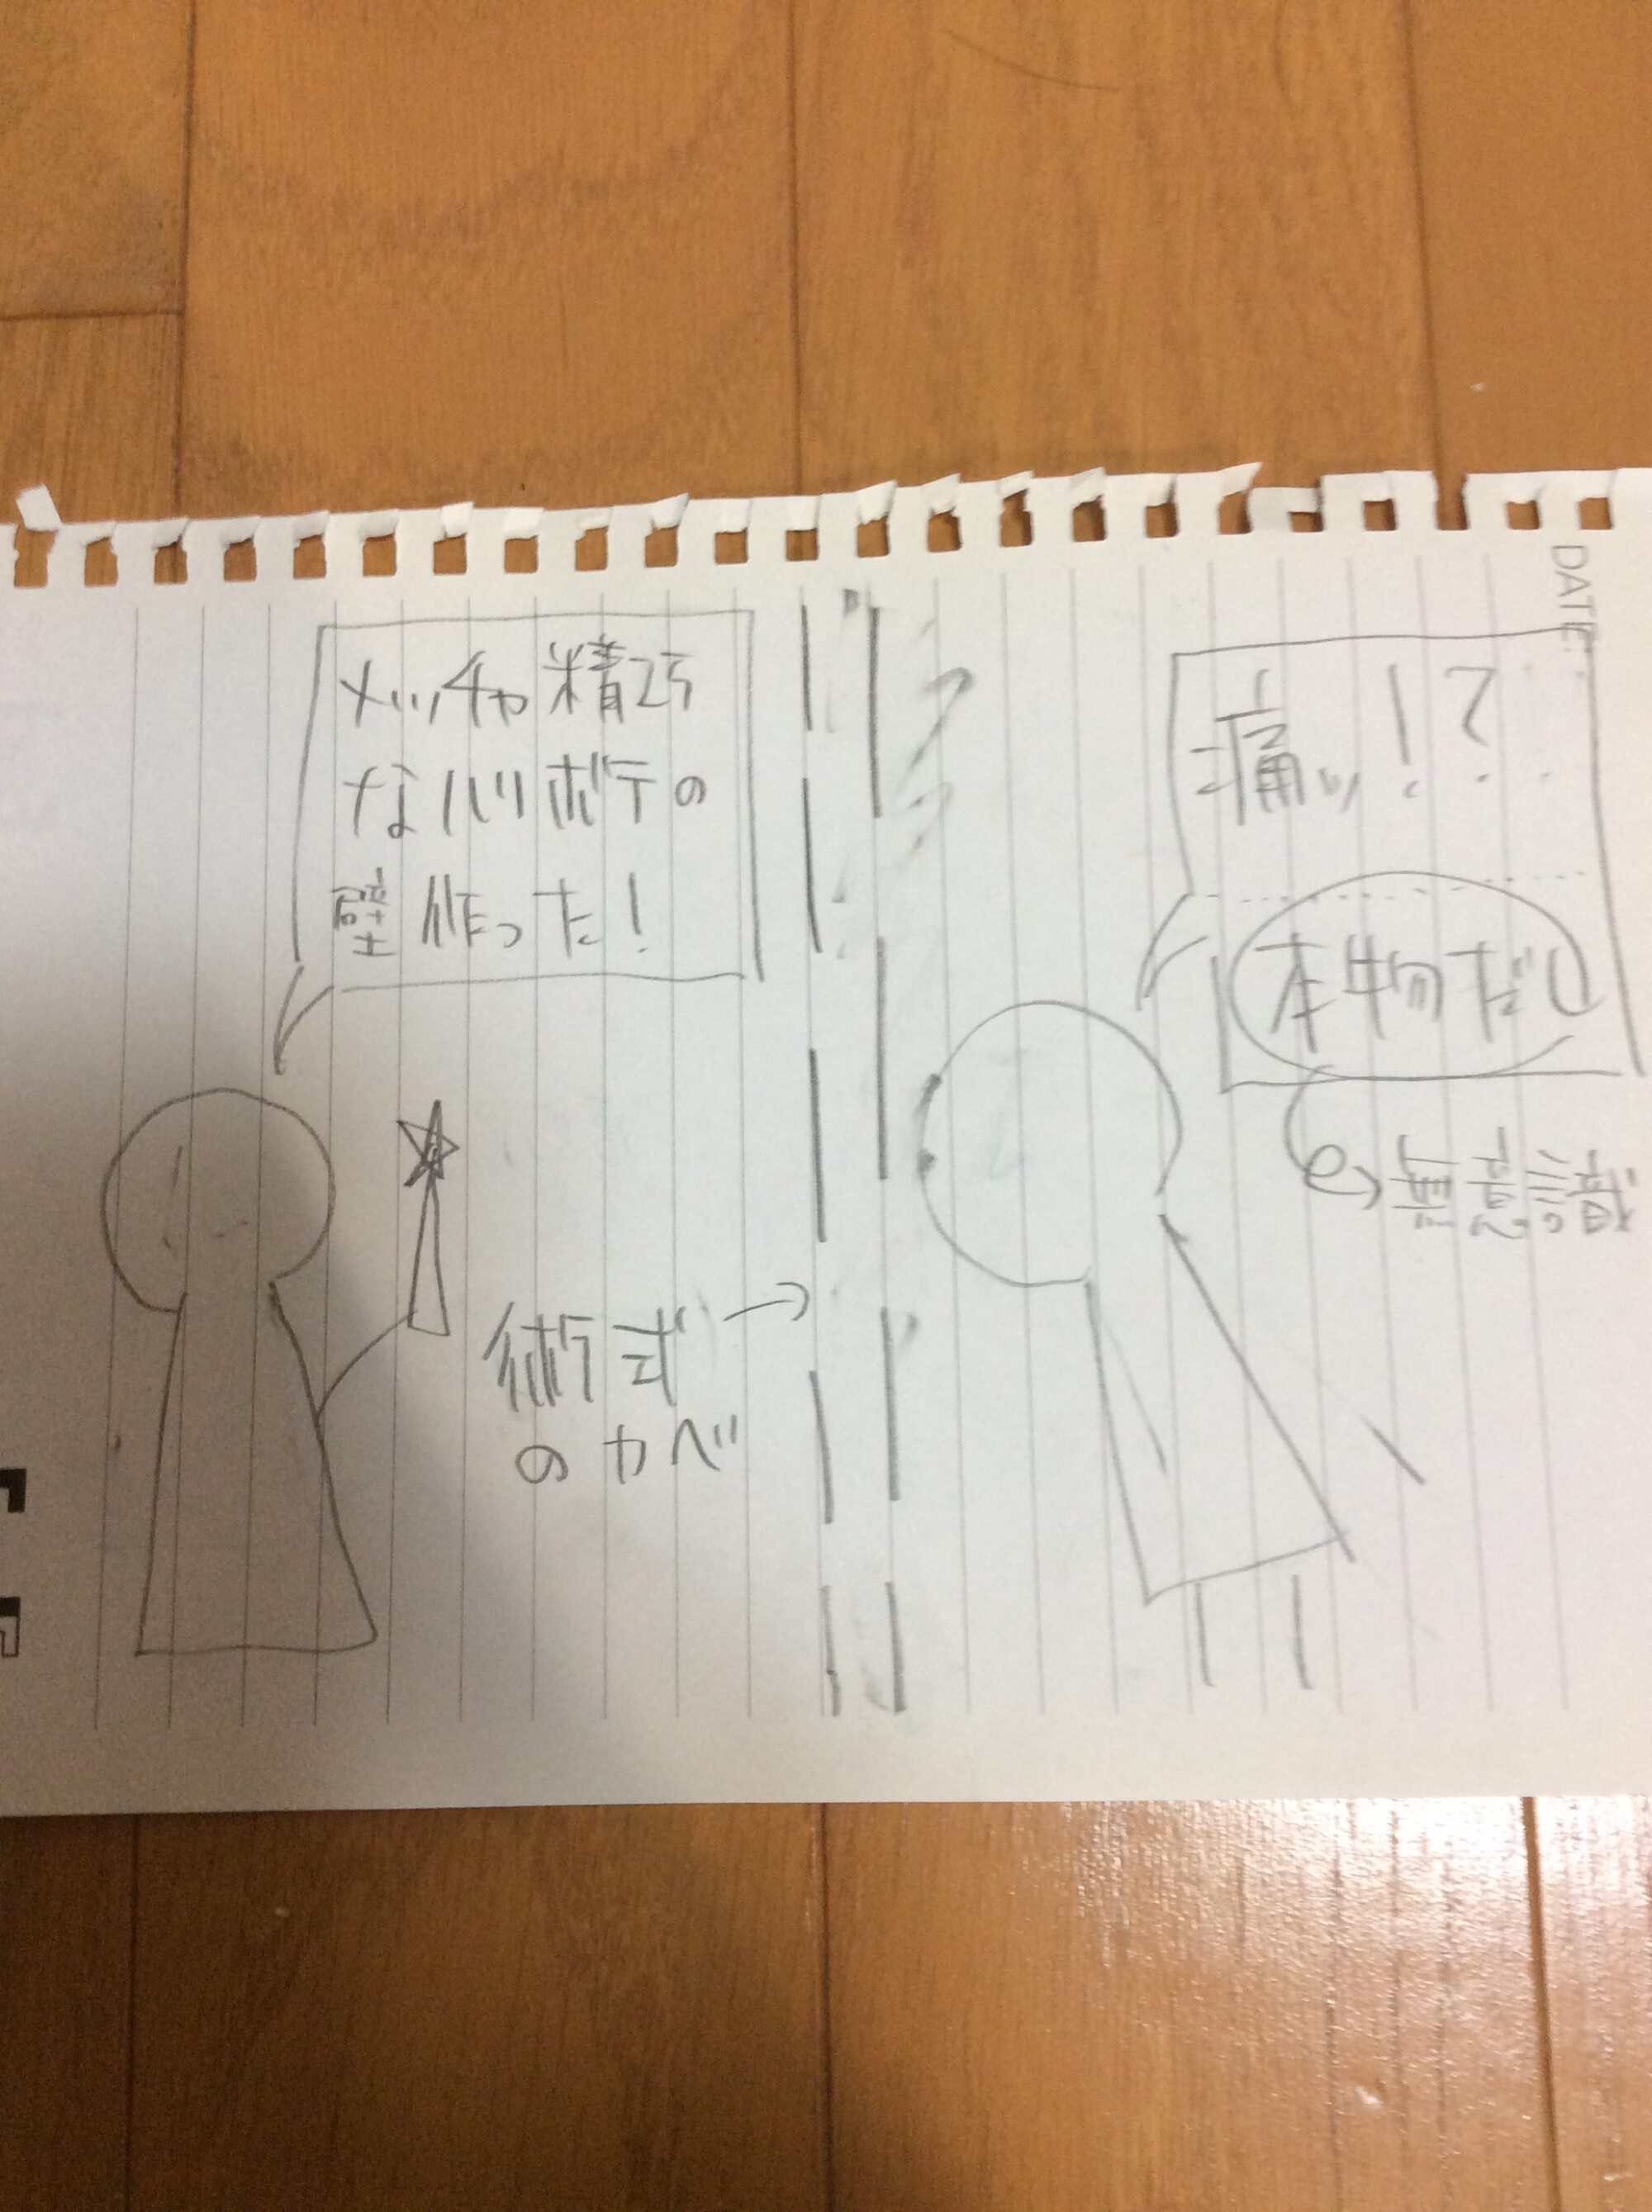 メッチャ精巧
なハリボテの
壁作った！
術式→
のカベ
DATE
痛ッ！？
本物だ